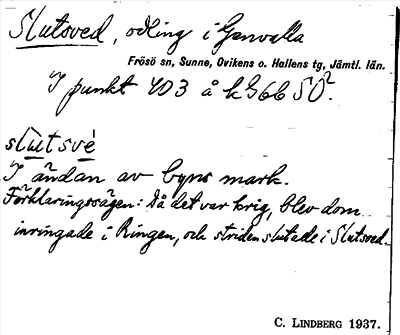 Slutsved, odling i Genvalla
Frösö sn, Sunne, Ovikens o. Hallens tg, Jämtl. län.
I punkt 403 å k 366 SÖ².
slūtsvé
I ändan av byns mark.
Förklaringssägen: Då det var krig, blev dom
inringade i Ringen, och striden slutade i Slutsved.
C. LINDBERG 1937.